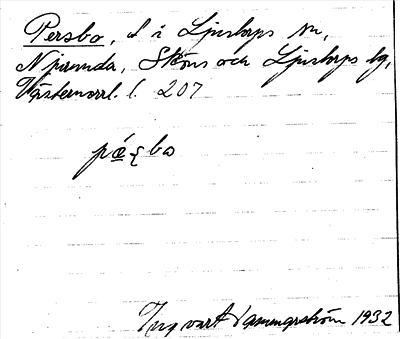 Persbo, d i Ljustorps sn,
Njurunda, Sköns och Ljustorps tg,
Västernorrl. l. 207
Ingvart 1932